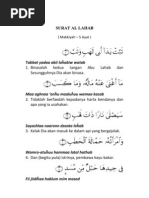 SURAT AL LAHAB
( Makkiyah – 5 Ayat )
تَبَّتْ يَدَا أَبِي لَهَبٍ وَتَبَّ
Tabbat yadaa abii lahabiw watab
1. Binasalah kedua tangan Abu Lahab dan
Sesungguhnya dia akan binasa.
مَا أَغْنَى عَنْهُ مَالُهُ وَمَا كَسَبَ
Maa aghnaa 'anhu maaluhuu wamaa kasab
2. Tidaklah berfaedah kepadanya harta bendanya dan
apa yang ia usahakan.
سَيَصْلَى نَارًا ذَاتَ لَهَبٍ
Sayashlaa naaron dzaata lahab
3. Kelak Dia akan masuk ke dalam api yang bergejolak.
وَامْرَأَتُهُ حَمَّالَةَ الْحَطَبِ
Wamro-atuhuu hammaa latal hathab
4. Dan (begitu pula) istrinya, pembawa kayu bakar.
فِي جِيدِهَا حَبْلٌ مِنْ مَسَدٍ
Fii jiidihaa hablum mim masad